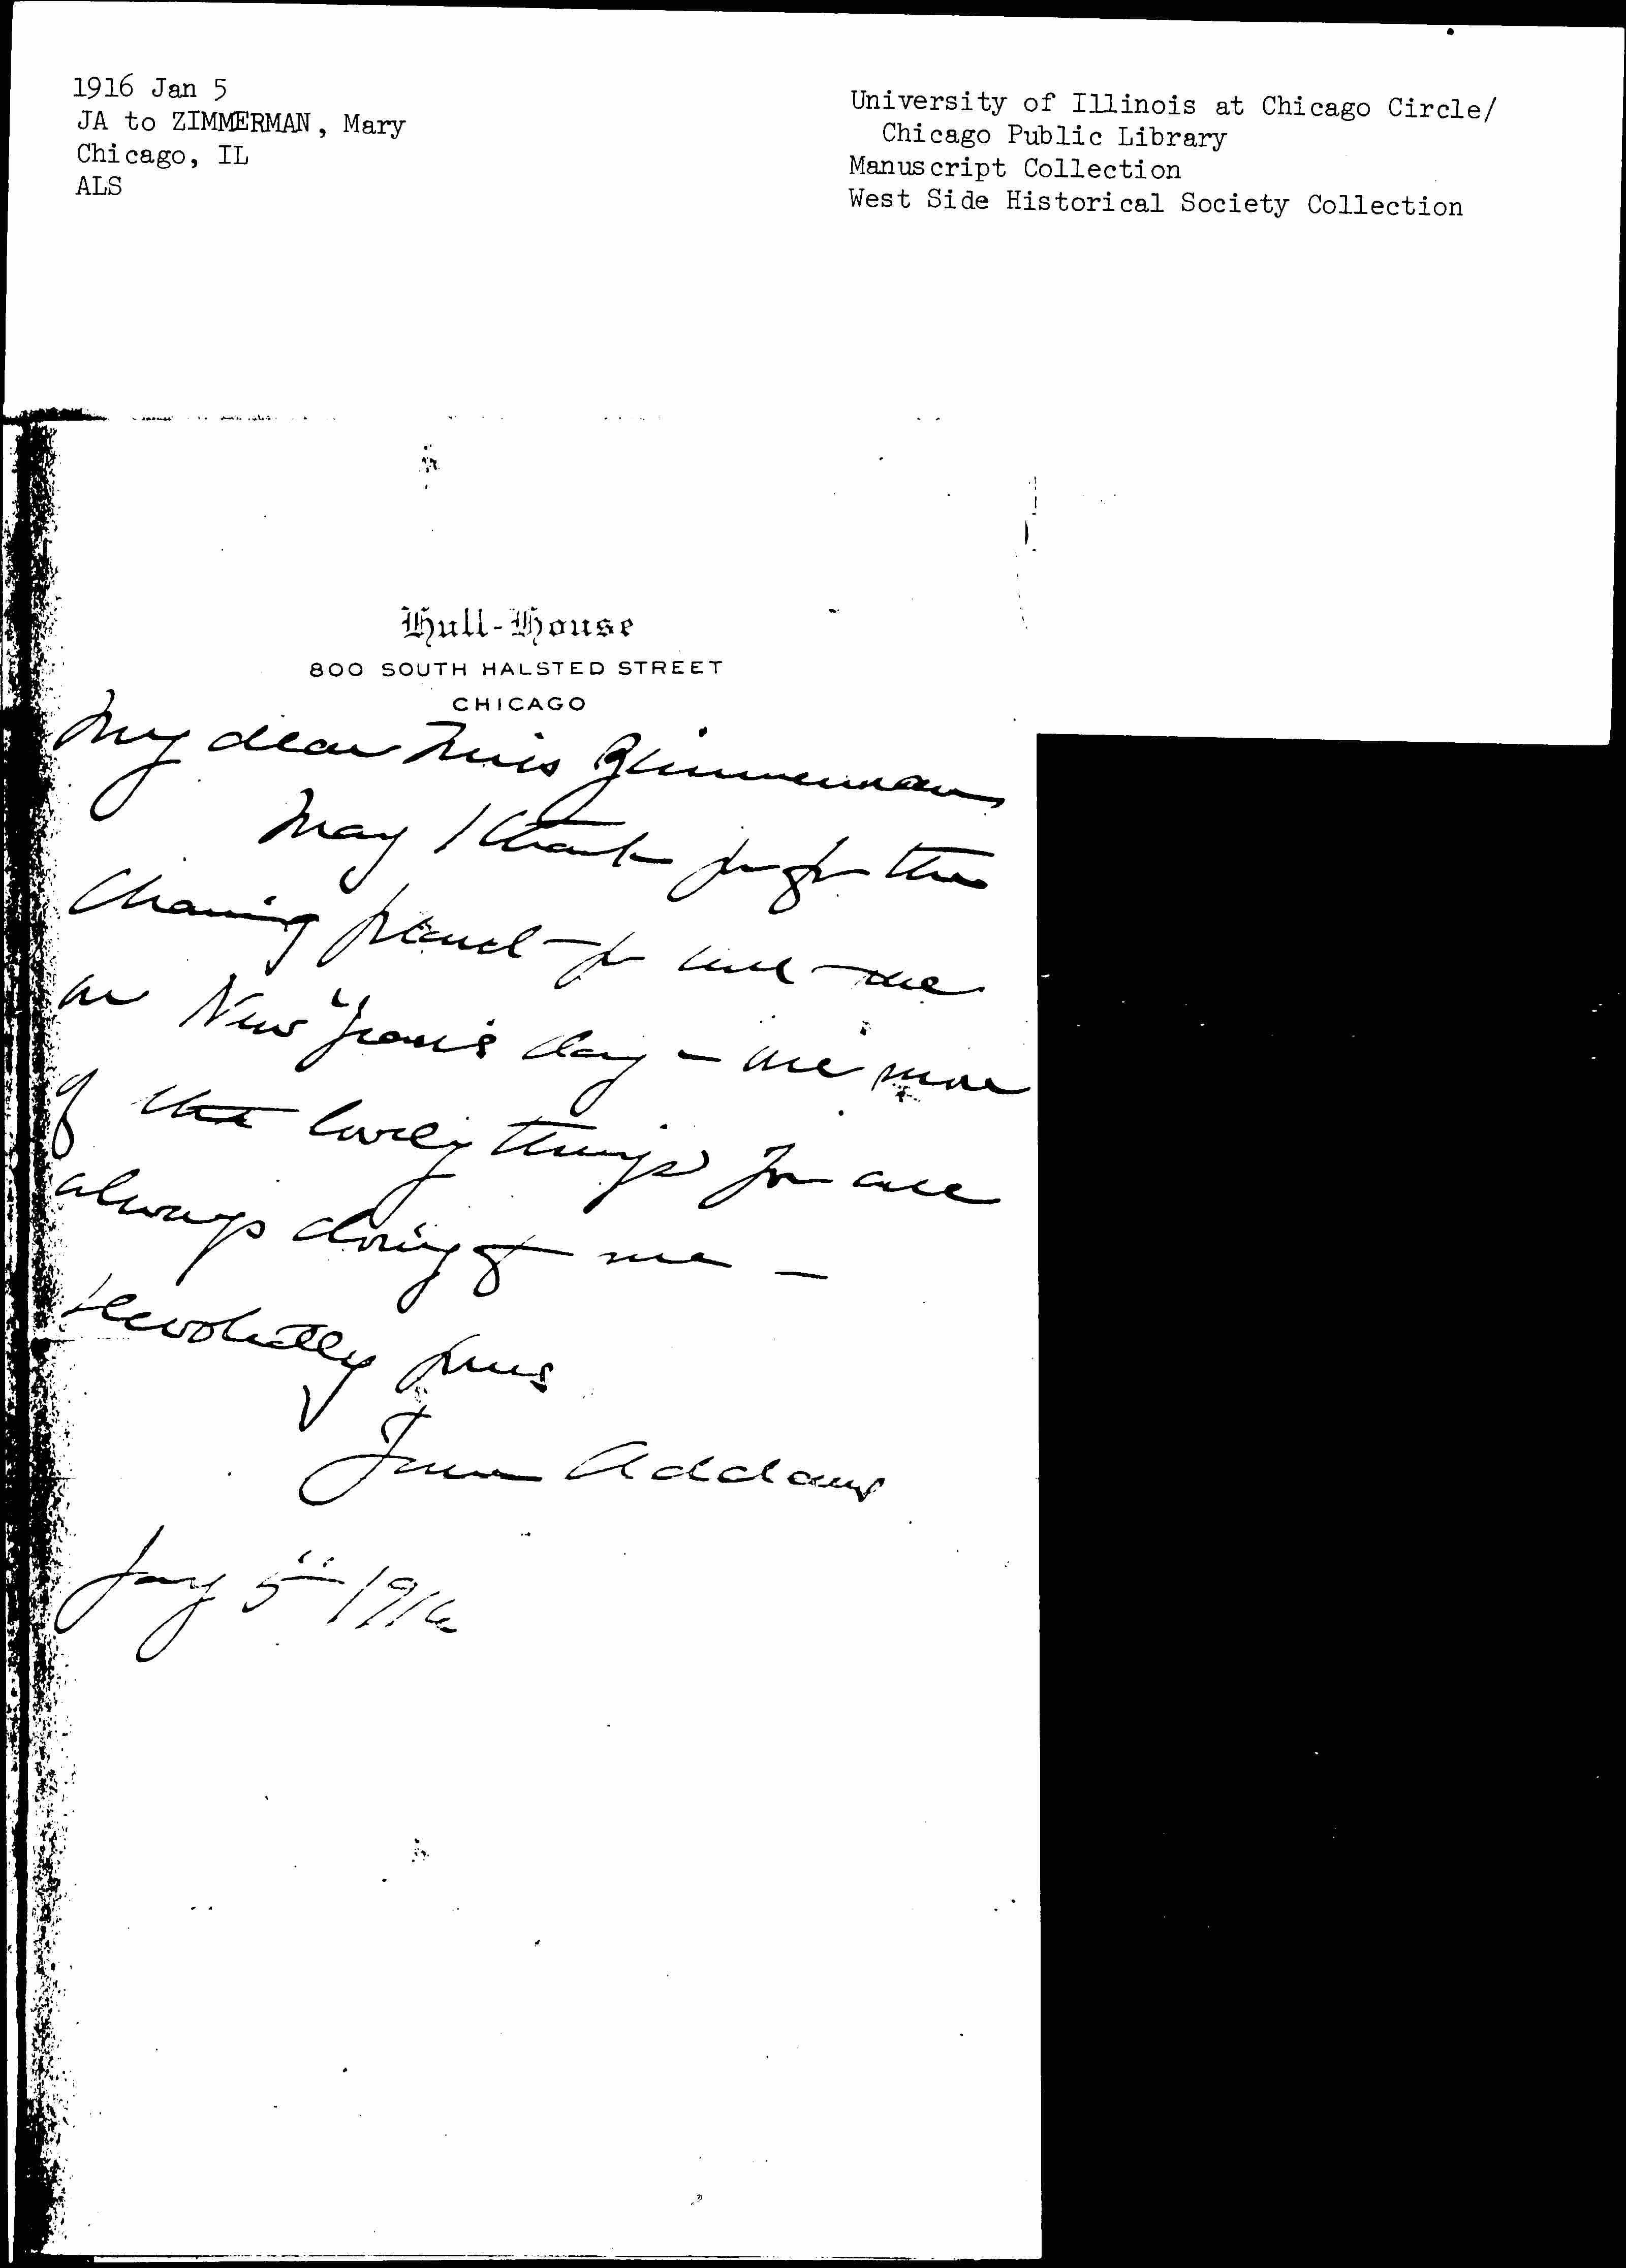 1916 Jan 5
JA to ZIMMERMAN, Mary
Chicago, IL
ALS
University of Illinois at Chicago Circle/
Chicago Public Library
Manuscript Collection
West Side Historical Society Collection
Hull-House
800 SOUTH HALSTED STREET
CHICAGO
My dear Miss Zimmerman
May I thank you for the
charming present you sent me
on New Year's day - one more
of the lovely things you are
always doing for me -
devotedly yours
Jane Addams
Jany 5" 1916